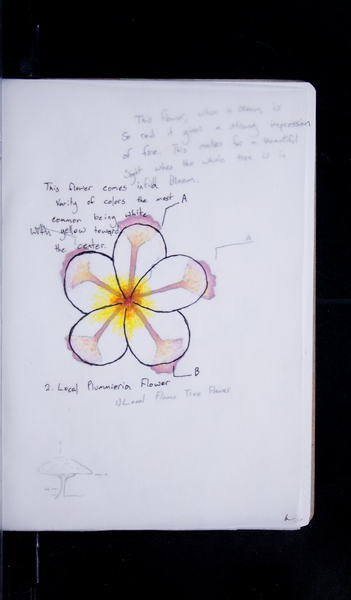 This flower, when in bloom, is
so red it gives a strong impression
of fire. This makes for a beautiful
sight when the whole tree is in
full bloom.
This flower comes in a
varity of colors the most
common being white
with yellow toward
the center.
A
A
B
2. Local Plummieria Flower
1) Local Flame Tree Flower